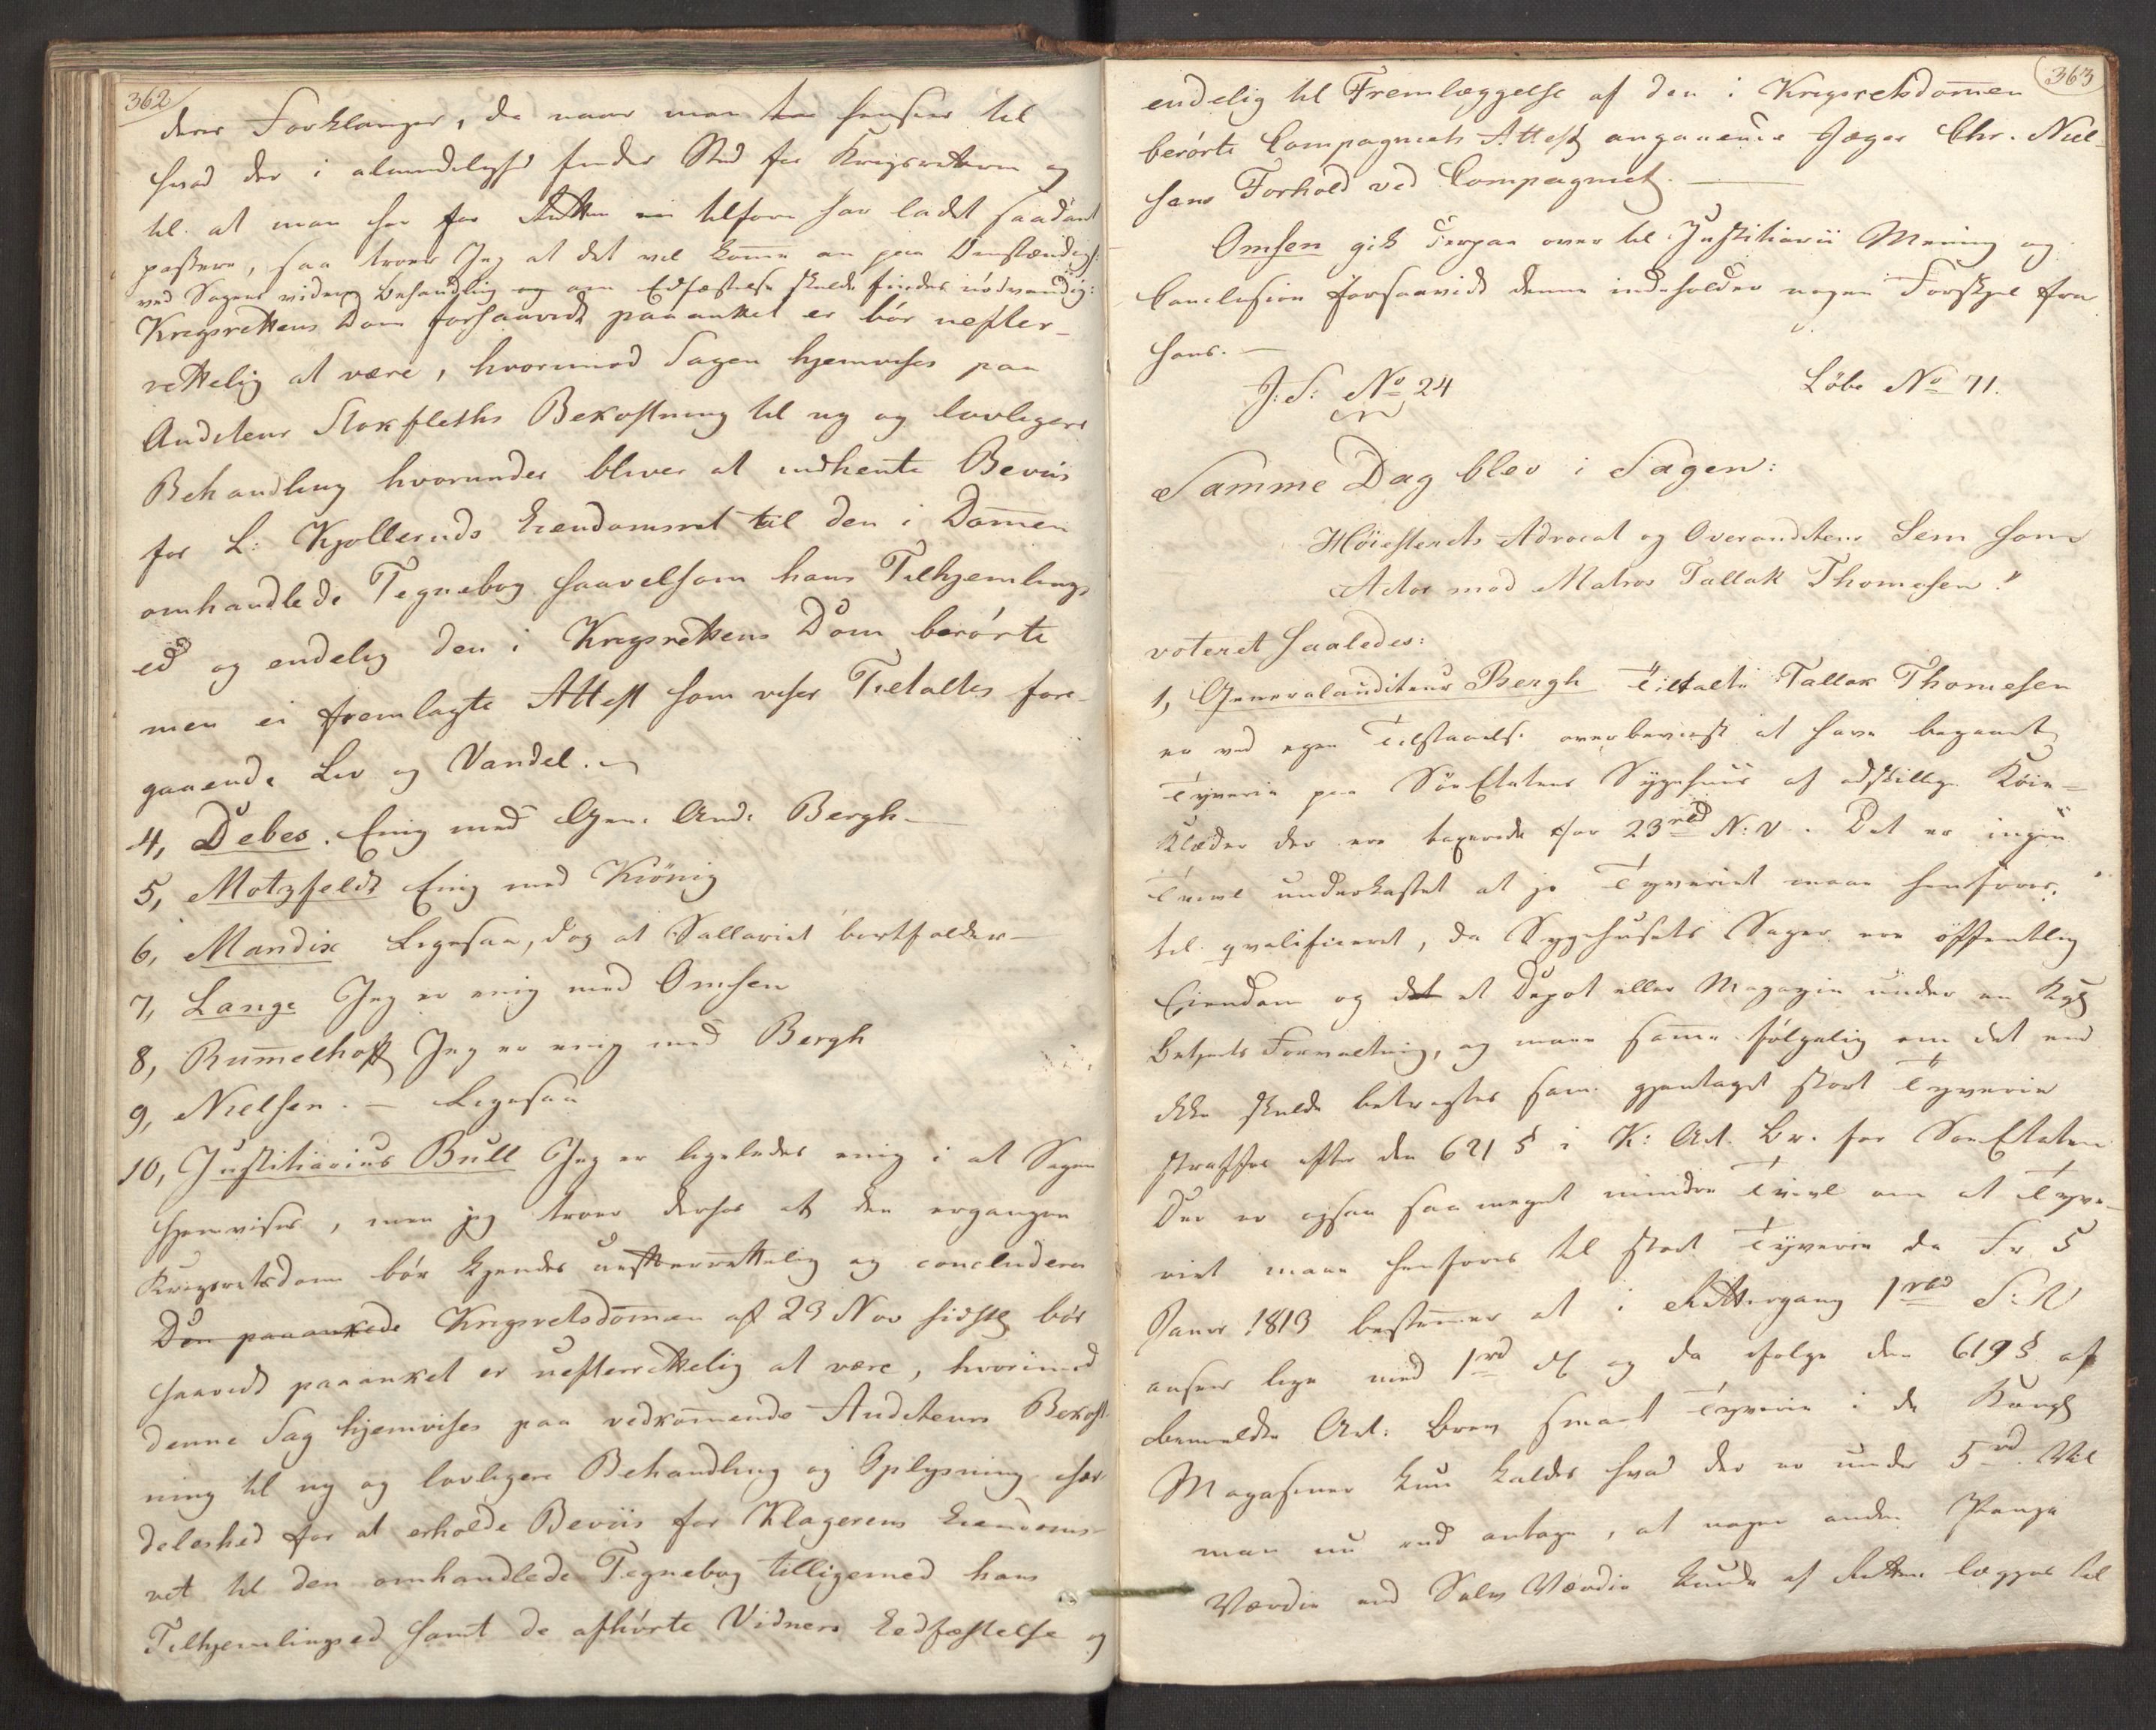 362
deres Forklaringer, da naar man hensees til
hvad der i almindelighed finder Sted for Krigsretterne og
til at man her for Retten tilforn har ladet saadant
passere, saa troer Jeg at det vil komme an paa Omstændigh:
ved Sagens videre Behandling og om Edfæstelse skulde findes nödvendig:
Krigsrettens Dom forsaavidt paaanket er bör uefter-
rettelig at være, hvorimod Sagen hjemvises paa
Auditeur Stokfleths Bekostning til ny og lovligere
Behandling hvorunder bliver at indhente Beviis
for L: Kjolleruds Eiendomsret til den i Dommen
omhandlede Tegnebog saavelsom hans Tilhjemlings
ed og endelig den i Krigsrettens Dom berörte
men ei fremlagte Attest som viser Tiltaltes fore-
gaaende Liv og Vandel.
4, Debes. Enig med Gen. Aud: Bergh
5, Motzfeldt Enig med Krönig
6, Mandix Ligesaa, dog at Sallariet bortfalder
7, Lange Jeg er enig med Omsen
8, Rummelhoff Jeg er enig med Bergh
9, Nielsen. — Ligesaa
10, Justitiarius Bull Jeg er ligeledes enig i at Sagen
hjemvises, men jeg troer derhos at den ergangne
Krigsretsdom bör kjendes uefterrettelig og concluderer
Den paaankede Krigsretsdommen af 23 Nov sidstl. bör
saavidt paaanket er uefterrettelig at være, hvorimod
denne Sag hjemvises paa vedkommende Auditeurs Bekost-
ning til ny og lovligere Behandling og Oplysning sær-
deleshed for at erholde Beviis for Klagerens Eiendoms-
ret til den omhandlede Tegnebog tilligemed hans
Tilhjemlingsed samt de afhörte Vidners Eedfæstelse og
363
endelig til Fremlæggelse af den i Krigsretsdommen
berörte Compagniets Attest angaaende Jæger Chr. Niel-
sens Forhold ved Compagniet.
Omsen gik derpaa over til Justitiarii Mening og
Conclusion forsaavidt denne indeholder nogen Forskjel fra
hans.
J: S: No 24 Löbe No 71.
Samme Dag blev i Sagen:
Höiesterets Advocat og Overauditeur Sem som
Actor mod Matros Tallak Thomesen
voteret saaledes:
1, Generalauditeur Bergh Tiltalte Tallak Thomesen
er ved egen Tilstaaelse overbeviist at have begaaet
Tyverie paa SöeEtatens Sygehuus af adskillige Köie-
Klæder der ere taxerede for 23 rd N: V. Det er ingen
Tvivl underkastet at jo Tyveriet maae henföres
til qvalificeret, da Sygehusets Sager ere offentlig
Eiendom og det et Depot eller Magazin under en Kgl
Betjents Forvaltning, og maae samme fölgelig om det end
ikke skulde betragtes som gjentaget stort Tyverie
straffes efter den 621 § i K: Art. Br. for SöeEtaten
Der er ogsaa saa meget mindre Tvivl om at Tyve-
riet maae henföres til stort Tyverie da Fr. 5
Janr 1813 bestemmer at i Rettergang 1 rbd S: V
ansees lige med 1 rd og da ifölge den 619 § af
bemeldte Art: Brev smaat Tyverie i de Kongl
Magasiner kun kaldes hvad der er under 5 rd. Vil
man nu end antage, at nogen anden Penge
Værdie end Sölv Værdie kunde af Retten lægges til